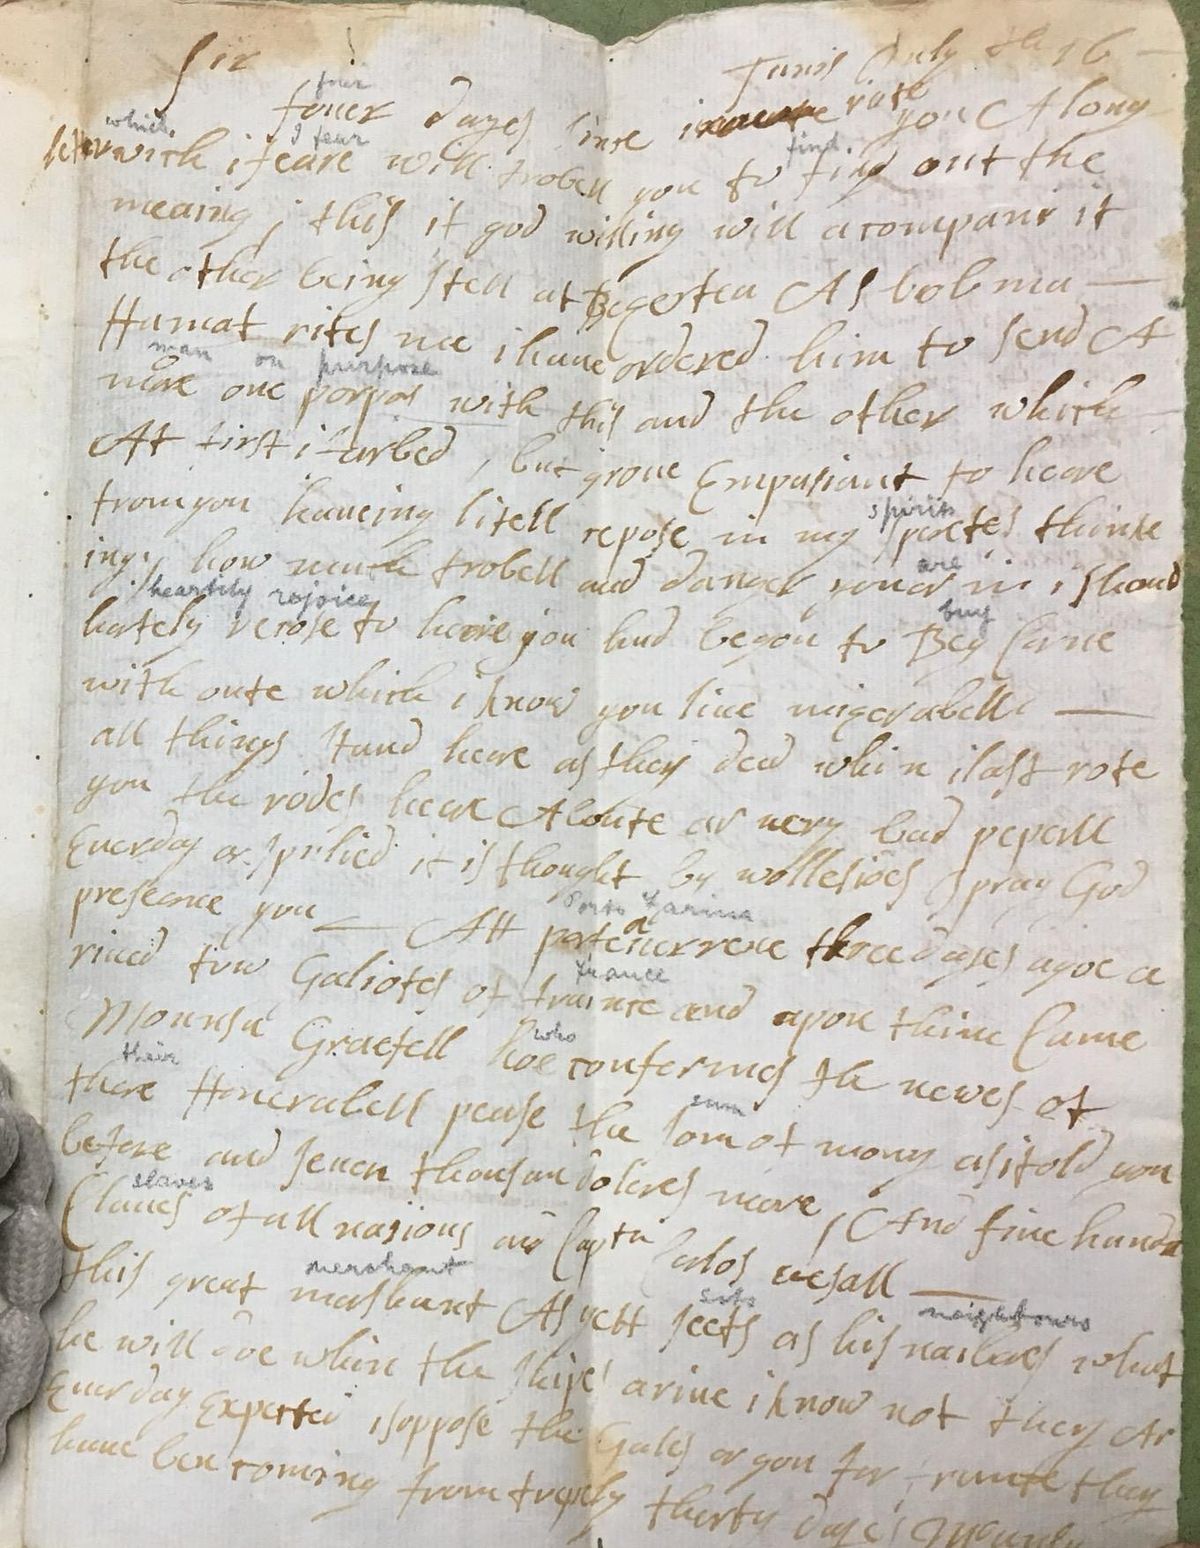 Sir
Tunis July the 16
four
fouer dayes sinc i rote you A long
which I fear find.
leter wich i feare will trobell you to find out the
meaing ; this if god willing will acompani it
the other being stell at Begertea As bob ma
Hamat rites me i haue ordered him to send A
man on purpose
mane one porpos with this and the other which
At first i farbed , but groue Empasiant to heare
spirits
from you heaueing litell repose in my speretes thinke
are
ing how much trobell and danger youer in i shoud
heartily rejoice buy
hartely rerose to heare you had begon to Bey Corne
with oute which i know you liue miserabell
all things stand heare as they ded when i last rote
you the rodes heare Aboute ar uery bad pepell
Euerday ar spilied it is thought by wollesioes I pray God
Porto Farina
preserue you At porte a uerrene three dayes agoe a
France
riued tow Galiotes of france and apon theme Came
who
Mounsu Graetell hoe confermes the newes of
their sum
there Honerabell pease the som of mony as i told you
before and seuen thousan doleres more , And fiue hundr
slaves
Slaues of all nasions and Captn Carlos
merchant sits neighbours
this great mashant As yett seets as his naibores what
he will doe when the ships ariue i know not they Ar
Euerday Expected i soppose the Gales or gon for
haue ben coming from trepely therty dayes Mounsu